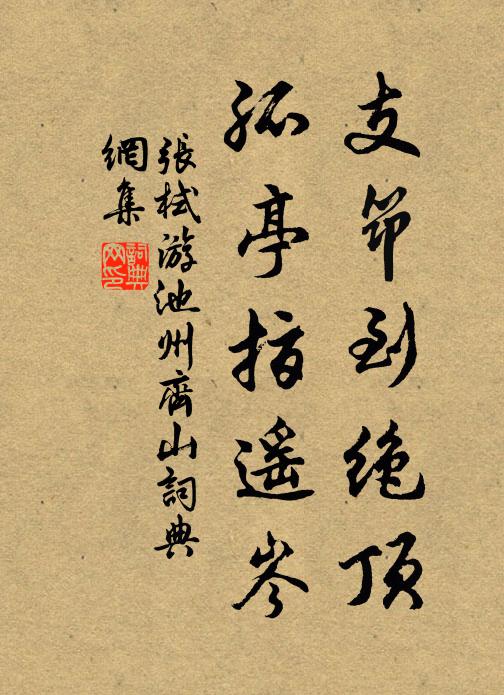 支筇到绝顶
孤亭指遥岑
張栻游池州齊山詞典
網集
詞典
网印